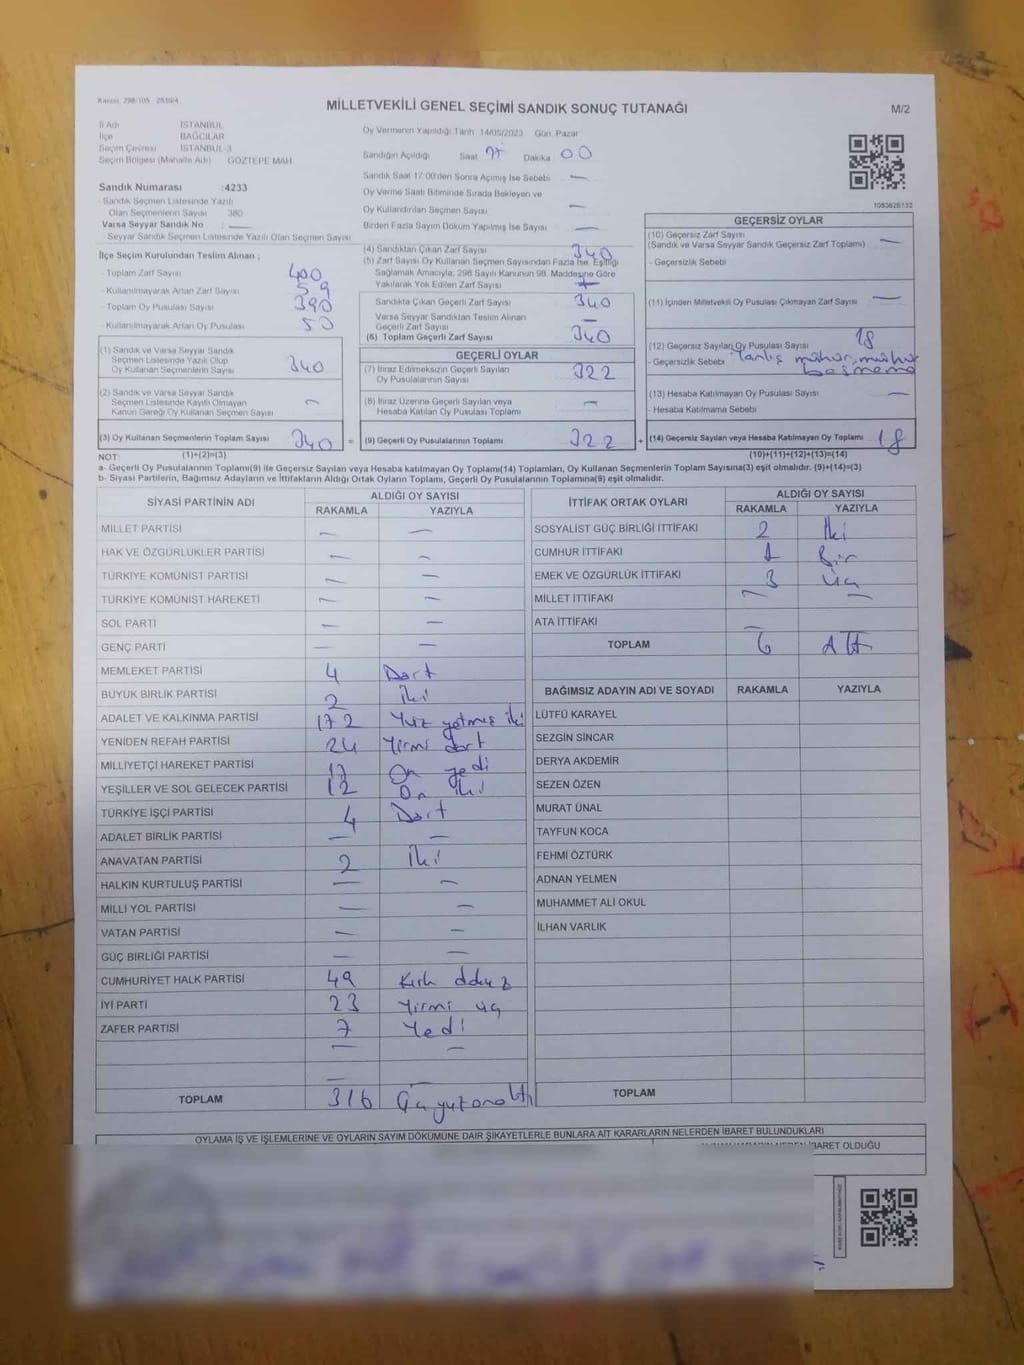 Kanun: 298/105 - 2839/4
MİLLETVEKİLİ GENEL SEÇİMİ SANDIK SONUÇ TUTANAĞI
M/2
İl Adı İSTANBUL
İlçe BAĞCILAR
Seçim Çevresi İSTANBUL-3
Seçim Bölgesi (Mahalle Adı) GÖZTEPE MAH
Sandık Numarası :4233
- Sandık Seçmen Listesinde Yazılı
Olan Seçmenlerin Sayısı 380
Varsa Seyyar Sandık No : —
- Seyyar Sandık Seçmen Listesinde Yazılı Olan Seçmen Sayısı
İlçe Seçim Kurulundan Teslim Alınan ;
- Toplam Zarf Sayısı 400
- Kullanılmayarak Artan Zarf Sayısı 59
- Toplam Oy Pusulası Sayısı 390
- Kullanılmayarak Artan Oy Pusulası 50
(1) Sandık ve Varsa Seyyar Sandık
Seçmen Listesinde Yazılı Olup
Oy Kullanan Seçmenlerin Sayısı 340
(2) Sandık ve Varsa Seyyar Sandık
Seçmen Listesinde Kayıtlı Olmayan
Kanun Gereği Oy Kullanan Seçmen Sayısı —
(3) Oy Kullanan Seçmenlerin Toplam Sayısı 340 =
Oy Vermenin Yapıldığı Tarih 14/05/2023 Gün Pazar
Sandığın Açıldığı Saat 17 Dakika 00
Sandık Saat 17:00'den Sonra Açılmış İse Sebebi —
Oy Verme Saati Bitiminde Sırada Bekleyen ve
Oy Kullandırılan Seçmen Sayısı —
Birden Fazla Sayım Döküm Yapılmış İse Sayısı —
(4) Sandıktan Çıkan Zarf Sayısı 340
(5) Zarf Sayısı Oy Kullanan Seçmen Sayısından Fazla İse, Eşitliği
Sağlamak Amacıyla, 298 Sayılı Kanunun 98. Maddesine Göre
Yakılarak Yok Edilen Zarf Sayısı
Sandıkta Çıkan Geçerli Zarf Sayısı 340
Varsa Seyyar Sandıktan Teslim Alınan
Geçerli Zarf Sayısı —
(6) Toplam Geçerli Zarf Sayısı 340
GEÇERLİ OYLAR
(7) İtiraz Edilmeksizin Geçerli Sayılan
Oy Pusulalarının Sayısı 322
(8) İtiraz Üzerine Geçerli Sayılan veya
Hesaba Katılan Oy Pusulası Toplamı —
(9) Geçerli Oy Pusulalarının Toplamı 322 +
1083828132
GEÇERSİZ OYLAR
(10) Geçersiz Zarf Sayısı —
(Sandık ve Varsa Seyyar Sandık Geçersiz Zarf Toplamı)
- Geçersizlik Sebebi
(11) İçinden Milletvekili Oy Pusulası Çıkmayan Zarf Sayısı —
(12) Geçersiz Sayılan Oy Pusulası Sayısı 18
- Geçersizlik Sebebi Yanlış mühür, mühür
basmama
(13) Hesaba Katılmayan Oy Pusulası Sayısı —
- Hesaba Katılmama Sebebi
(14) Geçersiz Sayılan veya Hesaba Katılmayan Oy Toplamı 18
NOT: (1)+(2)=(3) (10)+(11)+(12)+(13)=(14)
a- Geçerli Oy Pusulalarının Toplamı(9) ile Geçersiz Sayılan veya Hesaba katılmayan Oy Toplamı(14) Toplamları, Oy Kullanan Seçmenlerin Toplam Sayısına(3) eşit olmalıdır. (9)+(14)=(3)
b- Siyasi Partilerin, Bağımsız Adayların ve İttifakların Aldığı Ortak Oyların Toplamı, Geçerli Oy Pusulalarının Toplamına(9) eşit olmalıdır.
SİYASİ PARTİNİN ADI
ALDIĞI OY SAYISI
RAKAMLA YAZIYLA
MİLLET PARTİSİ — —
HAK VE ÖZGÜRLÜKLER PARTİSİ — —
TÜRKİYE KOMÜNİST PARTİSİ — —
TÜRKİYE KOMÜNİST HAREKETİ — —
SOL PARTİ — —
GENÇ PARTİ — —
MEMLEKET PARTİSİ 4 Dört
BÜYÜK BİRLİK PARTİSİ 2 İki
ADALET VE KALKINMA PARTİSİ 172 Yüz yetmiş iki
YENİDEN REFAH PARTİSİ 24 Yirmi dört
MİLLİYETÇİ HAREKET PARTİSİ 17 On yedi
YEŞİLLER VE SOL GELECEK PARTİSİ 12 On iki
TÜRKİYE İŞÇİ PARTİSİ 4 Dört
ADALET BİRLİK PARTİSİ — —
ANAVATAN PARTİSİ 2 İki
HALKIN KURTULUŞ PARTİSİ — —
MİLLİ YOL PARTİSİ — —
VATAN PARTİSİ — —
GÜÇ BİRLİĞİ PARTİSİ — —
CUMHURİYET HALK PARTİSİ 49 Kırk dokuz
İYİ PARTİ 23 Yirmi üç
ZAFER PARTİSİ 7 Yedi
— —
— —
TOPLAM 316 Üçyüzonaltı
İTTİFAK ORTAK OYLARI
ALDIĞI OY SAYISI
RAKAMLA YAZIYLA
SOSYALİST GÜÇ BİRLİĞİ İTTİFAKI 2 İki
CUMHUR İTTİFAKI 1 Bir
EMEK VE ÖZGÜRLÜK İTTİFAKI 3 Üç
MİLLET İTTİFAKI — —
ATA İTTİFAKI —
TOPLAM 6 Altı
BAĞIMSIZ ADAYIN ADI VE SOYADI RAKAMLA YAZIYLA
LÜTFÜ KARAYEL
SEZGİN SİNCAR
DERYA AKDEMİR
SEZEN ÖZEN
MURAT ÜNAL
TAYFUN KOCA
FEHMİ ÖZTÜRK
ADNAN YELMEN
MUHAMMET ALİ OKUL
İLHAN VARLIK
TOPLAM
OYLAMA İŞ VE İŞLEMLERİNE VE OYLARIN SAYIM DÖKÜMÜNE DAİR ŞİKAYETLERLE BUNLARA AİT KARARLARIN NELERDEN İBARET BULUNDUKLARI
İBARET OLDUĞU